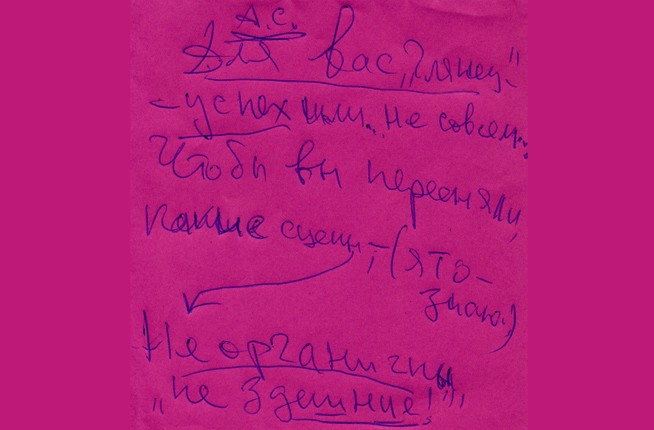 А.С.
Для вас „Глянец“
- успех или „не совсем“.
Чтобы вы пересняли,
какие сцены, - (я то-
знаю.)
Не органичны
„не здешние!“